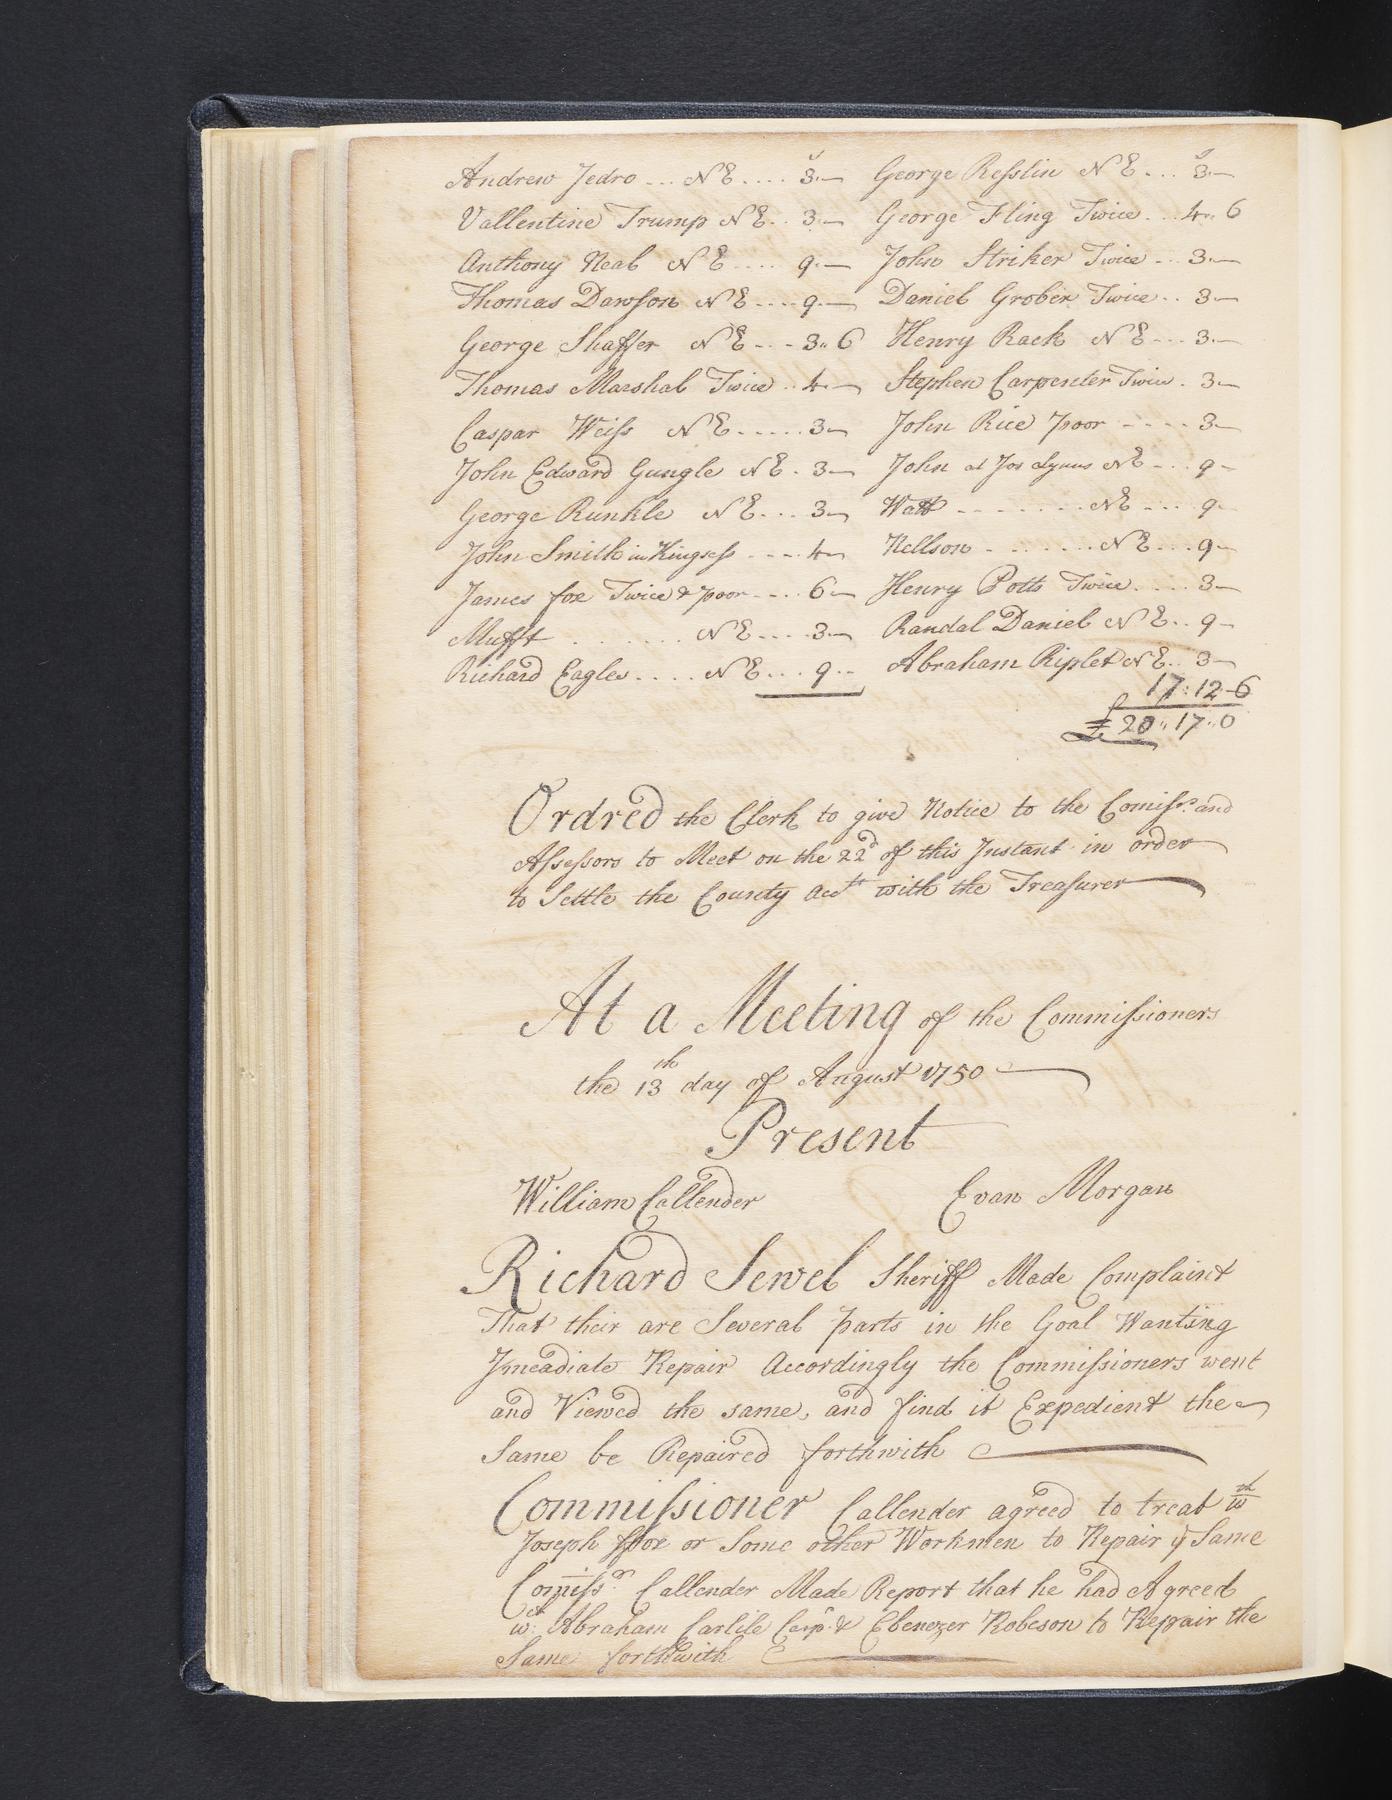 Andrew Jedro ... N E .... 3.— George Resslin N E ... 3.—
Vallentine Trump N E .. 3.— George Fling Twice ... 4.. 6
Anthony Neal N E .... 9.— John Striker Twice ... 3.—
Thomas Dawson N E .... 9.— Daniel Grober Twice .. 3.—
George Shaffer N E ... 3.. 6 Henry Rack N E ... 3.—
Thomas Marshal Twice .. 4.— Stephen Carpenter Twice . 3—
Caspar Weiss N E ..... 3— John Rice poor .... 3—
John Edward Gungle N E . 3— John at Jos Lynns N E ... 9—
George Runkle N E ... 3— Watt ....... N E ... 9—
John Smith in Kingsess .... 4— Nellson ....... N E ... 9—
James fox Twice & poor .... 6— Henry Potts Twice .... 3—
Mufft ....... N E .... 3— Randal Daniel N E .. 9—
Richard Eagles .... N E ... 9 .. Abraham Riplet N E .. 3—
17 : 12 - 6
£ 20 .. 17 .. 0
Ordred the Clerk to give Notice to the Comissrs. and
Assessors to Meet on the 22d of this Instant in order
to Settle the County Accts with the Treasurer
At a Meeting of the Commissioners
the 13th day of August 1750
Present
William Callender Evan Morgan
Richard Sewel Sheriff Made Complaint
That their are Several parts in the Goal Wanting
Imeadiate Repair Accordingly the Commissioners went
and Viewed the same, and find it Expedient the
Same be Repaired forthwith
Commissioner Callender agreed to treat wth
Joseph ffox or Some other Workmen to Repair ye Same
Comissr. Callender Made Report that he had Agreed
wth. Abraham Carlile Carpr. & Ebenezer Robeson to Repair the
Same forthwith